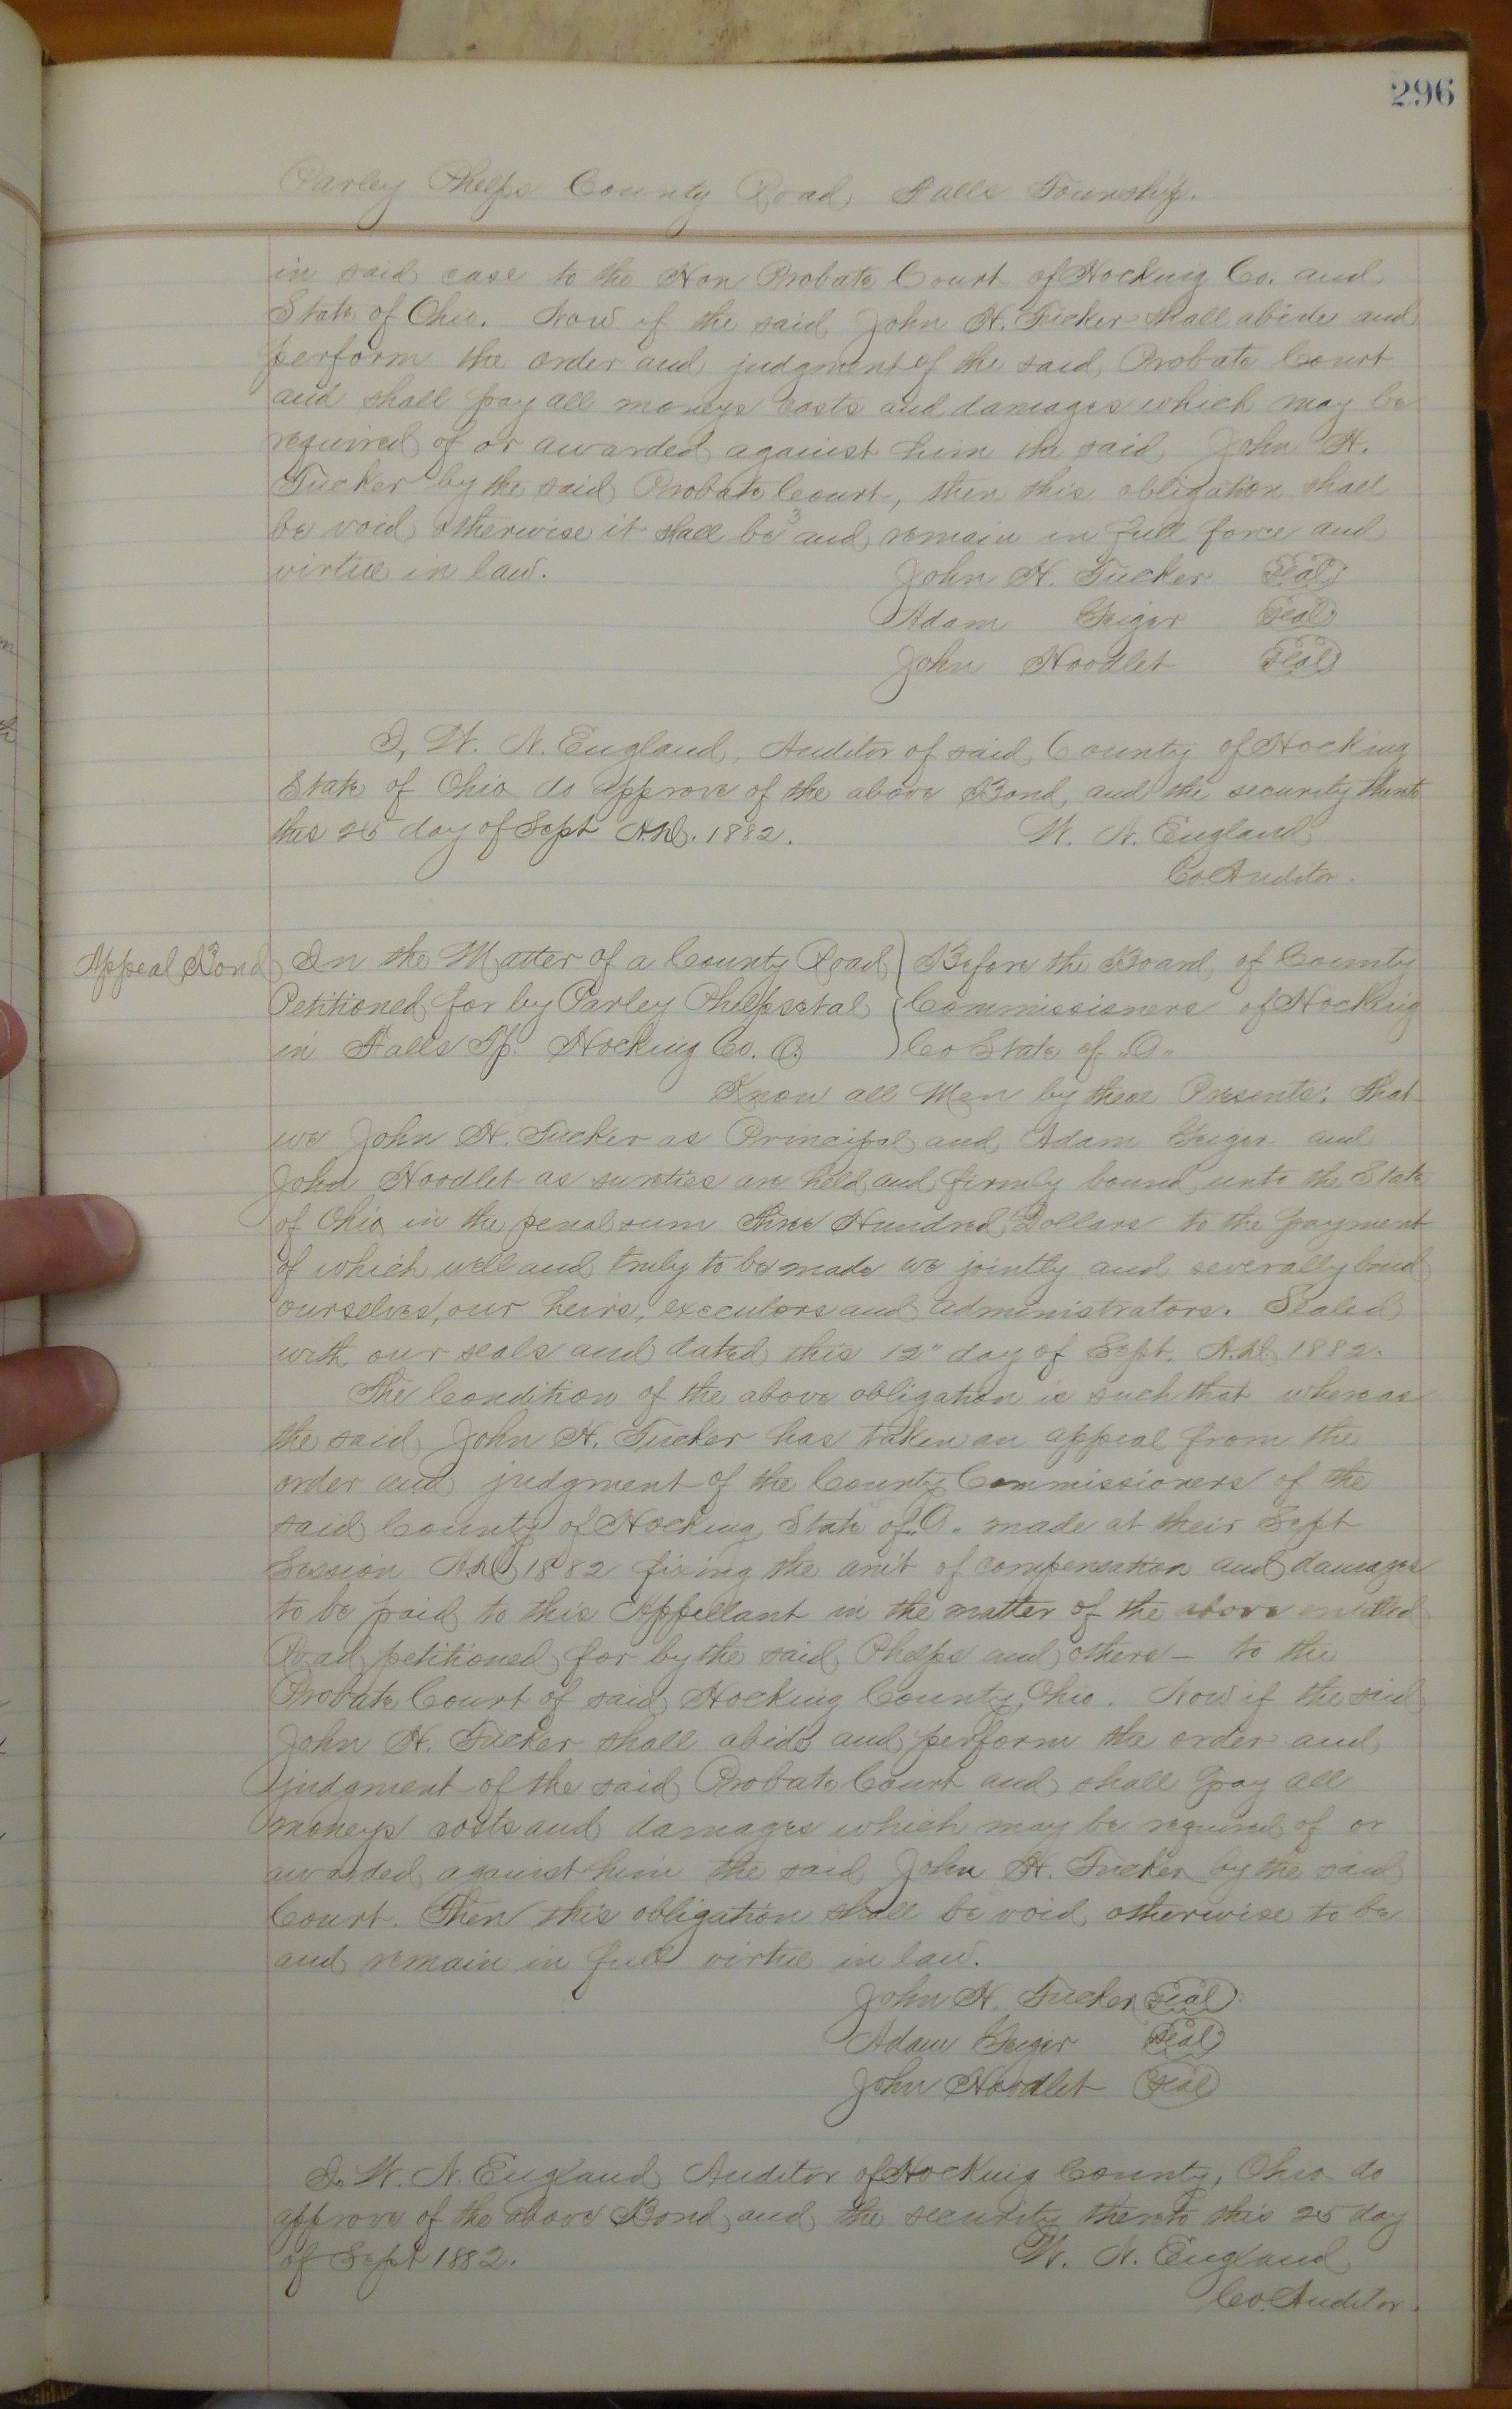 296
Parley Phelps County Road, Falls Township.
in said case to the Hon Probate Court of Hocking Co. and
State of Ohio. Now if the said John H. Tucker shall abide and
perform the order and judgment of the said Probate Court
and shall pay all moneys costs and damages which may be
required of or awarded against him the said John H.
Tucker by the said Probate Court, then this obligation shall
be void otherwise it shall be and remain in full force and
virtue in law. John H. Tucker Seal
Adam Geiger Seal
John Noodlet Seal
I, W. N. England, Auditor of said County of Hocking
State of Ohio do approve of the above Bond and the security thereto
this 25 day of Sept A.D. 1882. W. N. England
Co. Auditor.
Appeal Bond
In the Matter of a County Road } Before the Board of County
Petitioned for by Parley Phelps et al } Commissioners of Hocking
in Falls Tp. Hocking Co. O. } Co State of "O"
Know all Men by these Presents: That
we John H. Tucker as Principal and Adam Geiger and
John Noodlet as sureties are held and firmly bound unto the State
of Ohio in the penal sum three Hundred Dollars to the payment
of which well and truly to be made we jointly and severally bind
ourselves, our heirs, executors and administrators. Sealed
with our seals and dated this 12" day of Sept. A.D. 1882.
The Condition of the above obligation is such that whereas
the said John H. Tucker has taken an appeal from the
order and judgment of the County Commissioners of the
said County of Hocking State of "O" made at their Sept
Session A.D. 1882 fixing the am't of compensation and damages
to be paid to this Appellant in the matter of the above entitled
Road petitioned for by the said Phelps and others — to the
Probate Court of said Hocking County, Ohio. Now if the said
John H. Tucker shall abide and perform the order and
judgment of the said Probate Court and shall pay all
moneys costs and damages which may be required of or
awarded against him the said John H. Tucker by the said
Court. Then this obligation shall be void, otherwise to be
and remain in full virtue in law.
John H. Tucker Seal
Adam Geiger Seal
John Noodlet Seal
I, W. N. England Auditor of Hocking County, Ohio do
approve of the above Bond and the security thereto this 25 day
of Sept 1882. W. N. England
Co. Auditor.